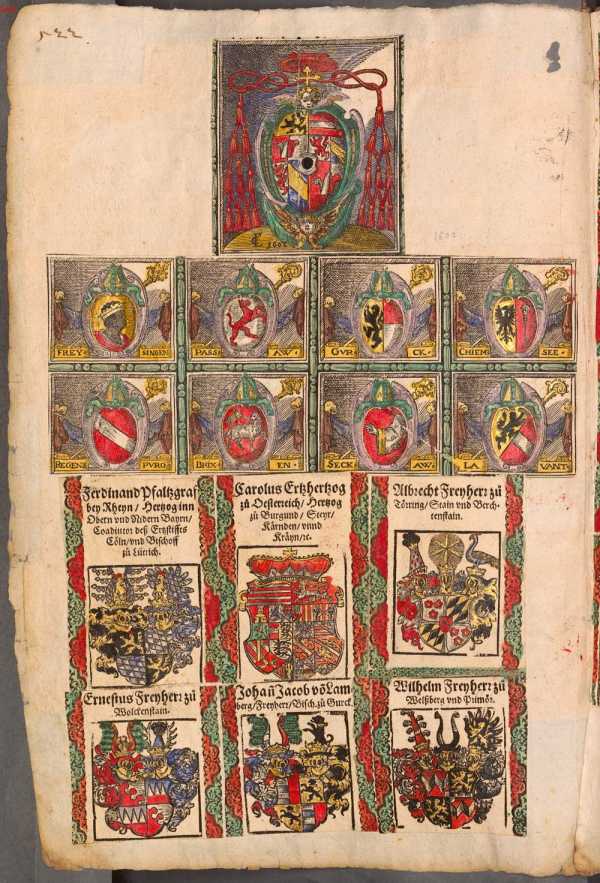 544
1602
1602
FREY SINGEN
PASS AW
GVR CK
CHIEM SEE
REGENS PVRG
BRIX EN
SECK AW
LA VANT
Ferdinand Pfaltzgraf
bey Rheyn / Hertzog inn
Obern vnd Nidern Bayrn /
Coadiutor deß Ertzstiffts
Cöln / vnd Bischoff
zu Lüttich.
Carolus Ertzhertzog
zů Oesterreich / Hertzog
zů Burgund / Steyr /
Kärnden / vnnd
Kräyn / ꝛc.
Albrecht Freyherꝛ zů
Törring / Stain vnd Berch-
tenstain.
Ernestus Freyherꝛ zů
Wolckenstain.
Johañ Jacob võ Lam
berg / Freyherꝛ / Bisch. zů Gurck.
Wilhelm Freyherꝛ zů
Welßberg vnd Primör.